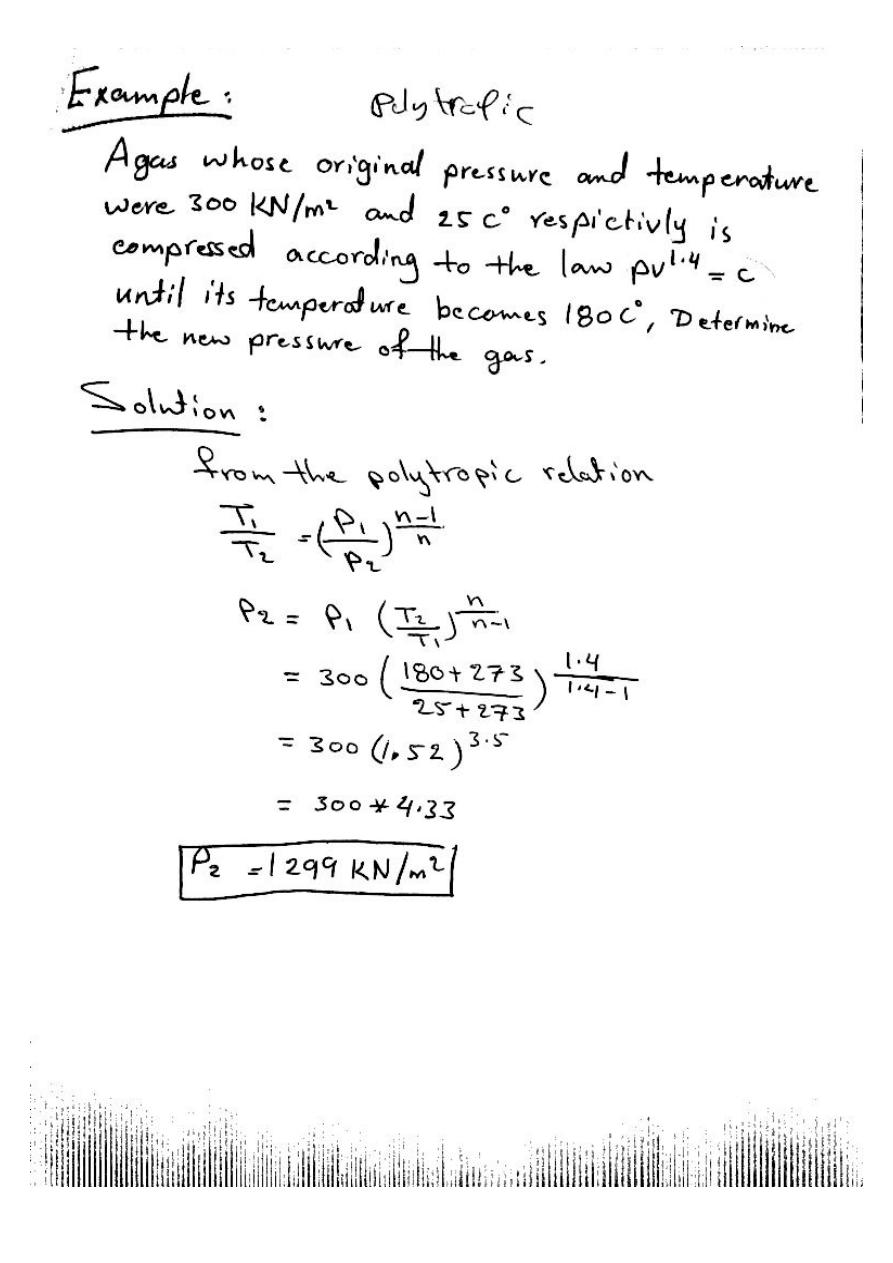 Example :
Polytropic
A gas whose original pressure and temperature
were 300 KN/m² and 25 C° respictivly is
compressed according to the law pv^1.4 = c
until its temperature becomes 180 C°, Determine
the new pressure of the gas.
Solution :
from the polytropic relation
T₁/T₂ = (P₁/P₂)^(n-1/n)
P₂ = P₁ (T₂/T₁)^(n/n-1)
= 300 (180+273/25+273)^(1.4/1.4-1)
= 300 (1.52)^3.5
= 300 * 4.33
P₂ = 1299 KN/m²